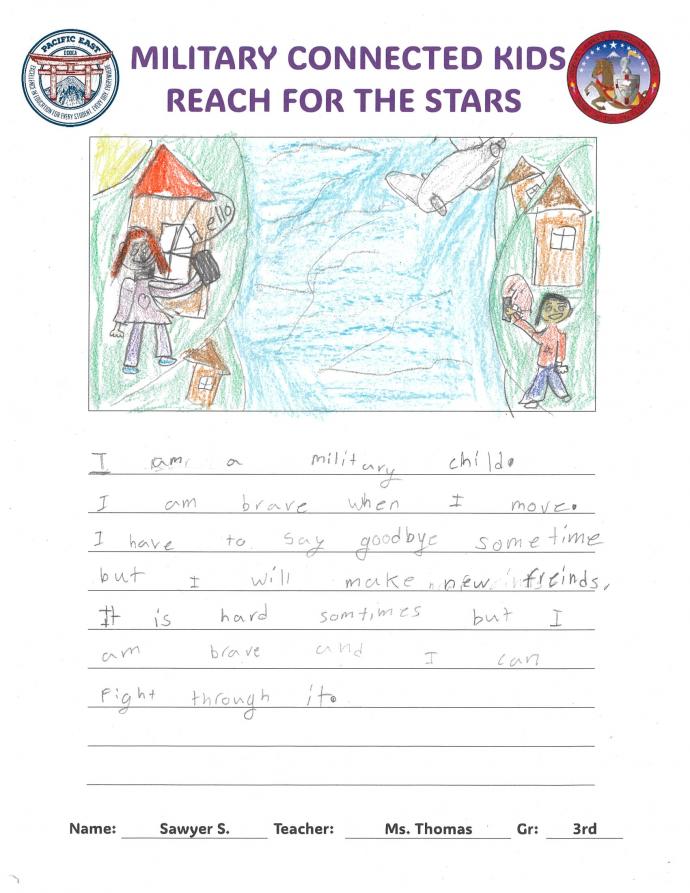 PACIFIC EAST
DODEA
EXCELLENCE IN EDUCATION FOR EVERY STUDENT, EVERY DAY, EVERYWHERE
MILITARY CONNECTED KIDS
REACH FOR THE STARS
ello
I am a military child.
I am brave when I move.
I have to say goodbye sometime
but I will make new freinds.
It is hard somtimes but I
am brave and I can
fight through it.
Name: Sawyer S. Teacher: Ms. Thomas Gr: 3rd